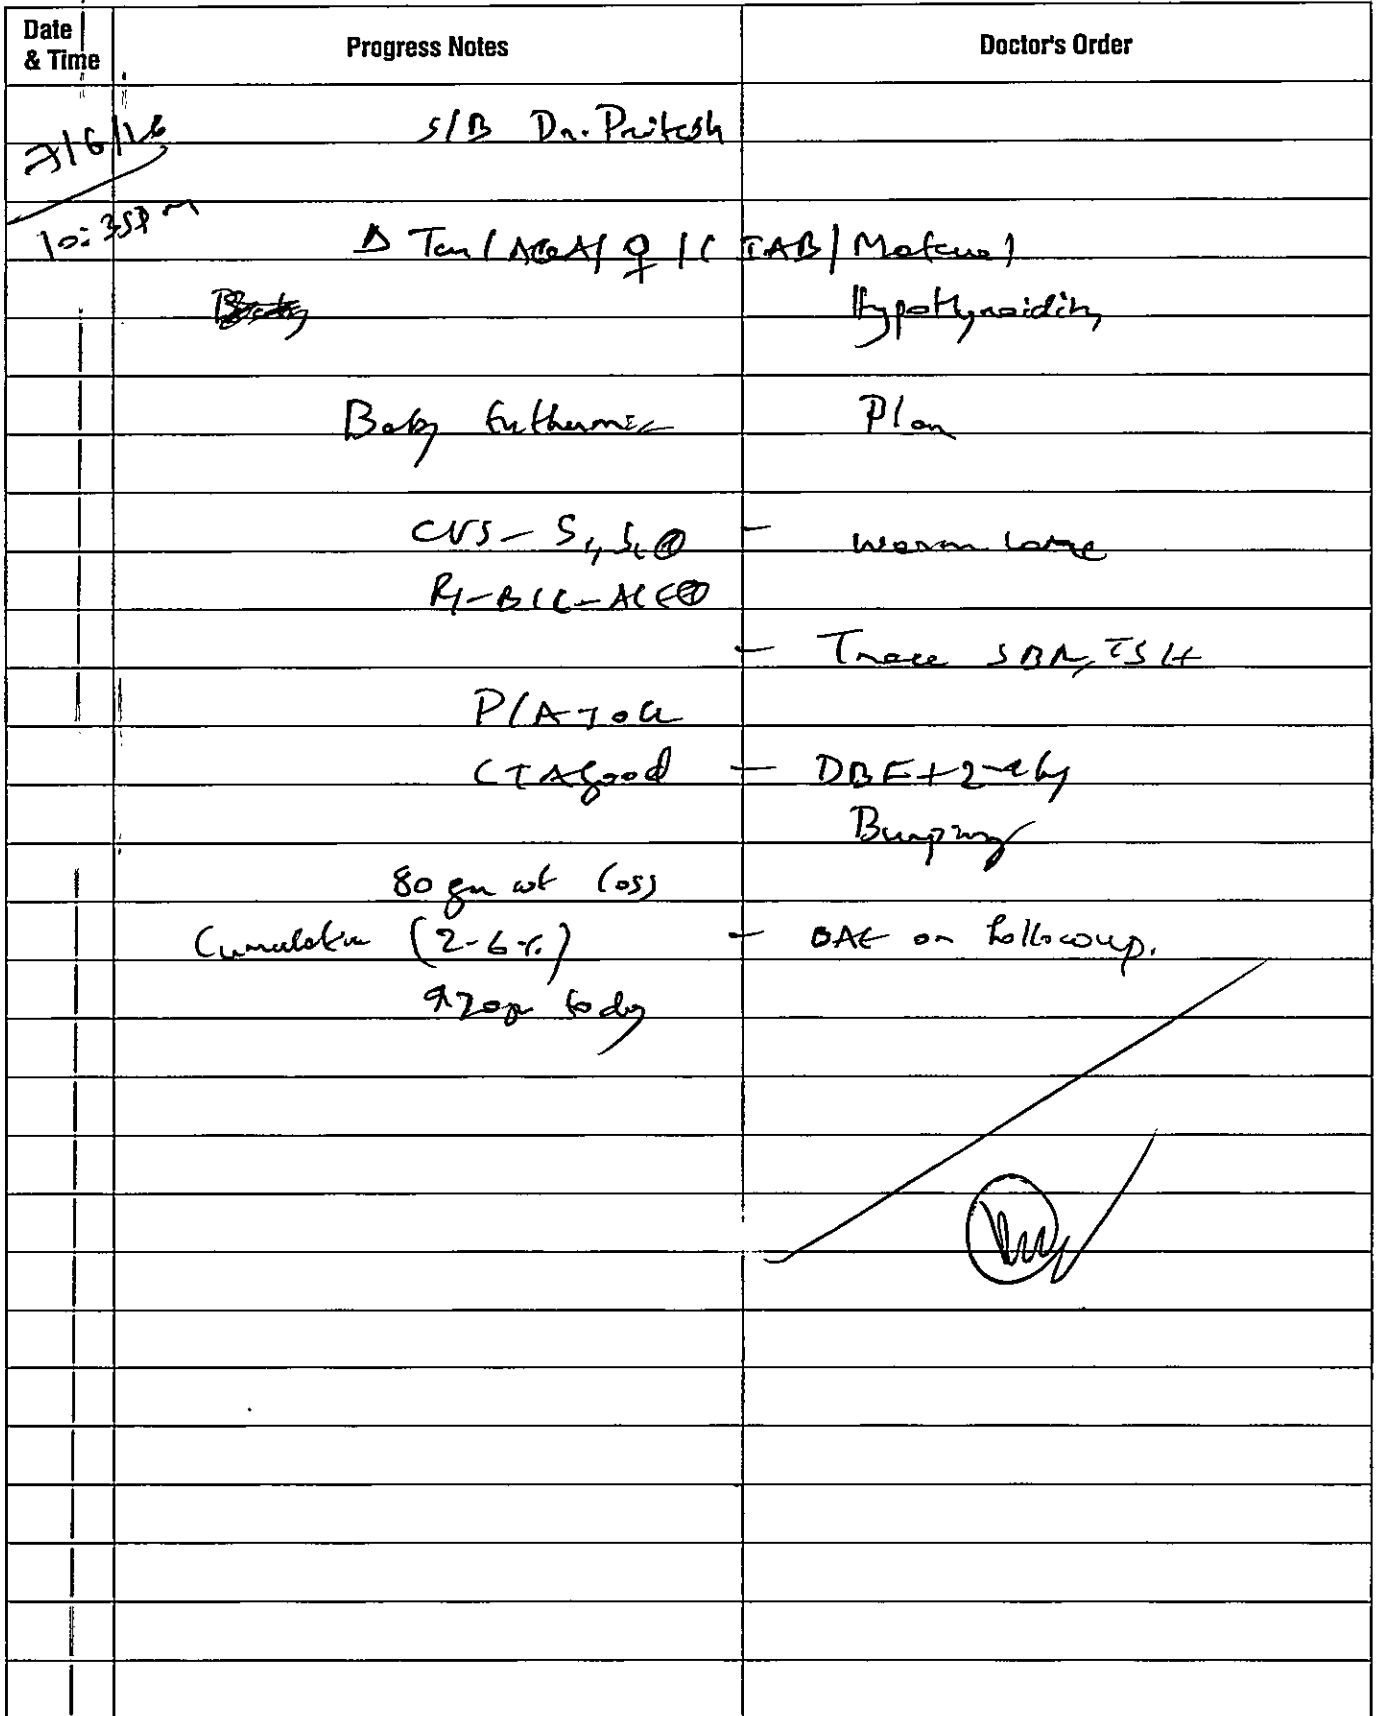 Date & Time
Progress Notes
Doctor's Order
7/6/16
S/B Dr. Pritesh
10:35P m
Δ Term / AGA / ♀ / CIAB / Maternal
Hypothyroidism
Baby Euthermic
Plan
CVS - S1, S2 ⊕
- warm care
RS - B/L - AE ⊕
- Trace SBR, TSH
P/A - soft
CTA good
- DBF + 2-2 hly
Burping
80 gm wt loss
Cumulative (2-6%)
- OAE on followup.
20gm today